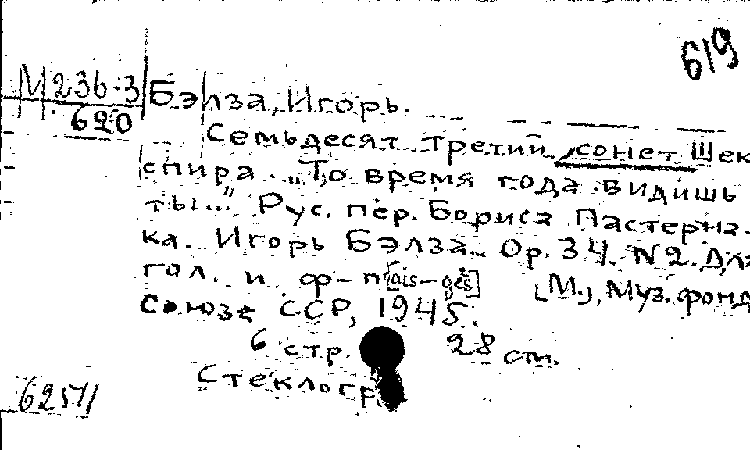 619
М 236-3 Бэлза, Игорь.
620
Семьдесят третий сонет Шек
спира. „То время года видишь
ты..." Рус. пер. Бориса Пастерна-
ка. Игорь Бэлза. Ор. 34. N2. Для
гол. и ф-п [ais-gis] [М.], Муз. фонд
Союза ССР, 1945.
6 стр. 28 cm.
Стеклогр.